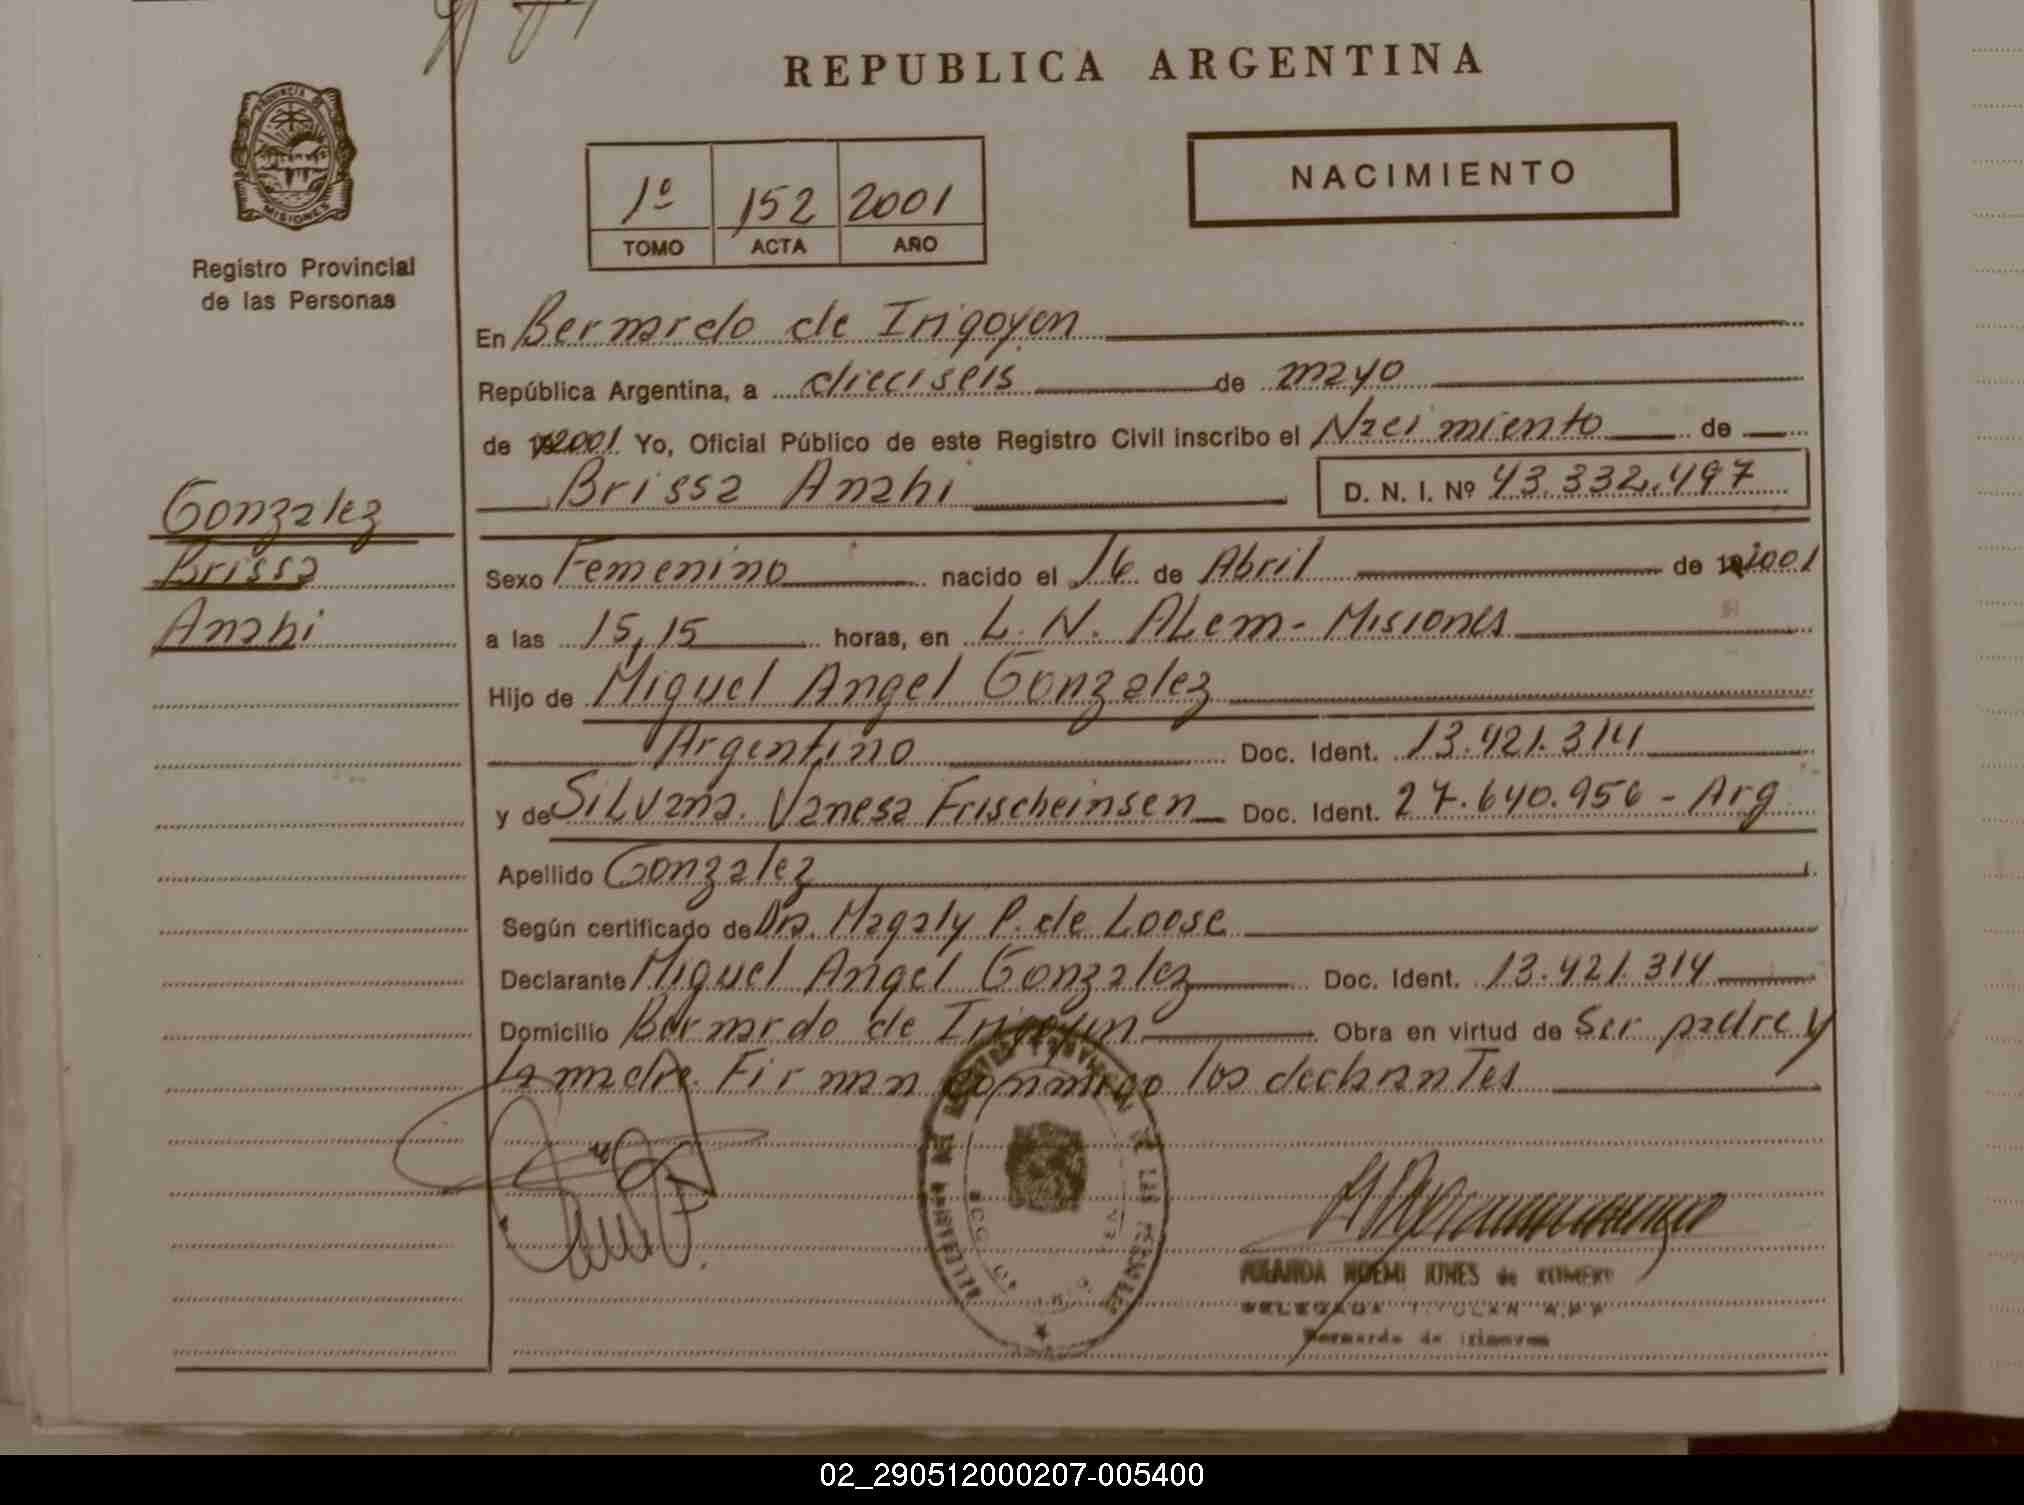 REPUBLICA ARGENTINA
PROVINCIA DE
MISIONES
Registro Provincial
de las Personas
1º 152 2001
TOMO ACTA AÑO
NACIMIENTO
En Bernardo de Irigoyen
República Argentina, a dieciseis de mayo
de 2001 Yo, Oficial Público de este Registro Civil inscribo el Nacimiento de
Brissa Anahi D. N. I. Nº 43.332.497
Gonzalez
Brissa
Anahi
Sexo Femenino nacido el 16 de Abril de 2001
a las 15,15 horas, en L. N. ALem - Misiones
Hijo de Miguel Angel Gonzalez
Argentino Doc. Ident. 13.421.314
y de SiLvana Vanesa Frischeinsen Doc. Ident. 27.640.956 - Arg
Apellido Gonzalez
Según certificado de Dra. Magaly P. de Loose
Declarante Miguel Angel Gonzalez Doc. Ident. 13.421.314
Domicilio Bernardo de Irigoyen Obra en virtud de Ser padre y
la madre. Firman conmigo los declarantes
NOEMI de ROMERO
DELEGADA TITULAR
Bernardo de Irigoyen
02_290512000207-005400